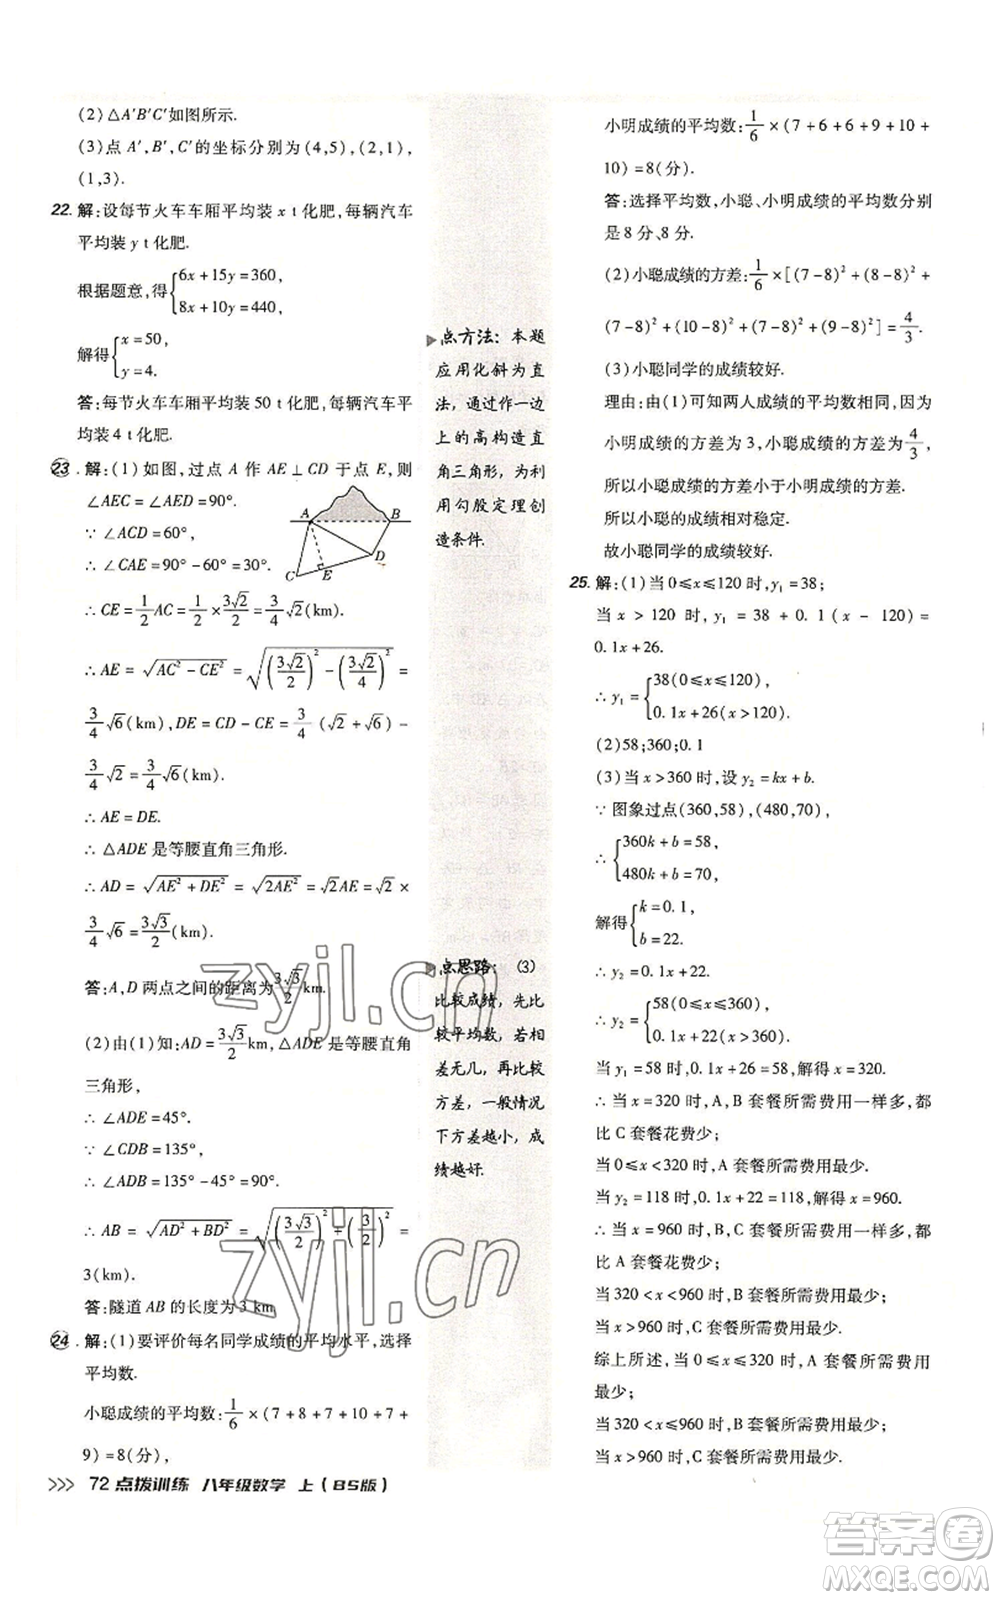 (2)△A′B′C′如图所示.
(3)点 A′,B′,C′的坐标分别为(4,5),(2,1),
(1,3).
22. 解:设每节火车车厢平均装 x t 化肥,每辆汽车
平均装 y t 化肥.
根据题意,得{6x+15y=360,
8x+10y=440,
解得{x=50,
y=4.
答:每节火车车厢平均装 50 t 化肥,每辆汽车平
均装 4 t 化肥.
23. 解:(1)如图,过点 A 作 AE⊥CD 于点 E,则
∠AEC=∠AED=90°.
∵∠ACD=60°,
∴∠CAE=90°-60°=30°.
A B C E D
∴CE=1/2AC=1/2×3√2/2=3/4√2(km).
∴AE=√(AC²-CE²)=√((3√2/2)²-(3√2/4)²)=
3/4√6(km),DE=CD-CE=3/4(√2+√6)-
3/4√2=3/4√6(km).
∴AE=DE.
∴△ADE 是等腰直角三角形.
∴AD=√(AE²+DE²)=√(2AE²)=√2AE=√2×
3/4√6=3√3/2(km).
答:A,D 两点之间的距离为3√3/2 km.
(2)由(1)知:AD=3√3/2 km,△ADE 是等腰直角
三角形,
∴∠ADE=45°.
∵∠CDB=135°,
∴∠ADB=135°-45°=90°.
∴AB=√(AD²+BD²)=√((3√3/2)²+(3/2)²)=
3(km).
答:隧道 AB 的长度为 3 km.
24. 解:(1)要评价每名同学成绩的平均水平,选择
平均数.
小聪成绩的平均数:1/6×(7+8+7+8+9+
9)=8(分),
点方法:本题
应用化斜为直
法,通过作一边
上的高构造直
角三角形,为利
用勾股定理创
造条件.
点思路:(3)
比较成绩,先比
较平均数,若相
差无几,再比较
方差,一般情况
下方差越小,成
绩越好.
小明成绩的平均数:1/6×(7+6+6+9+10+
10)=8(分).
答:选择平均数,小聪、小明成绩的平均数分别
是 8 分、8 分.
(2)小聪成绩的方差:1/6×[(7-8)²+(8-8)²+
(7-8)²+(8-8)²+(9-8)²+(9-8)²]=4/3.
(3)小聪同学的成绩较好.
理由:由(1)可知两人成绩的平均数相同,因为
小明成绩的方差为 3,小聪成绩的方差为4/3,
所以小聪成绩的方差小于小明成绩的方差.
所以小聪的成绩相对稳定.
故小聪同学的成绩较好.
25. 解:(1)当 0≤x≤120 时,y₁=38;
当 x>120 时,y₁=38+0.1(x-120)=
0.1x+26.
∴y₁={38(0≤x≤120),
0.1x+26(x>120).
(2)58;360;0.1
(3)当 x>360 时,设 y₂=kx+b.
∵图象过点(360,58),(480,70),
∴{360k+b=58,
480k+b=70,
解得{k=0.1,
b=22.
∴y₂=0.1x+22(x>360).
∴y₂={58(0≤x≤360),
0.1x+22(x>360).
当 y₁=58 时,0.1x+26=58,解得 x=320.
∴当 x=320 时,A,B 套餐所需费用一样多,都
比 C 套餐花费少;
当 0≤x<320 时,A 套餐所需费用最少.
当 y₂=118 时,0.1x+22=118,解得 x=960.
∴当 x=960 时,B,C 套餐所需费用一样多,都
比 A 套餐花费少;
当 320<x<960 时,B 套餐所需费用最少;
当 x>960 时,C 套餐所需费用最少.
综上所述,当 0≤x≤320 时,A 套餐所需费用
最少;
当 320<x≤960 时,B 套餐所需费用最少;
当 x>960 时,C 套餐所需费用最少.
>>> 72 点拨训练 八年级数学 上(BS版)
zyjl.cn
zyjl.cn
答案圈
MXQE.COM